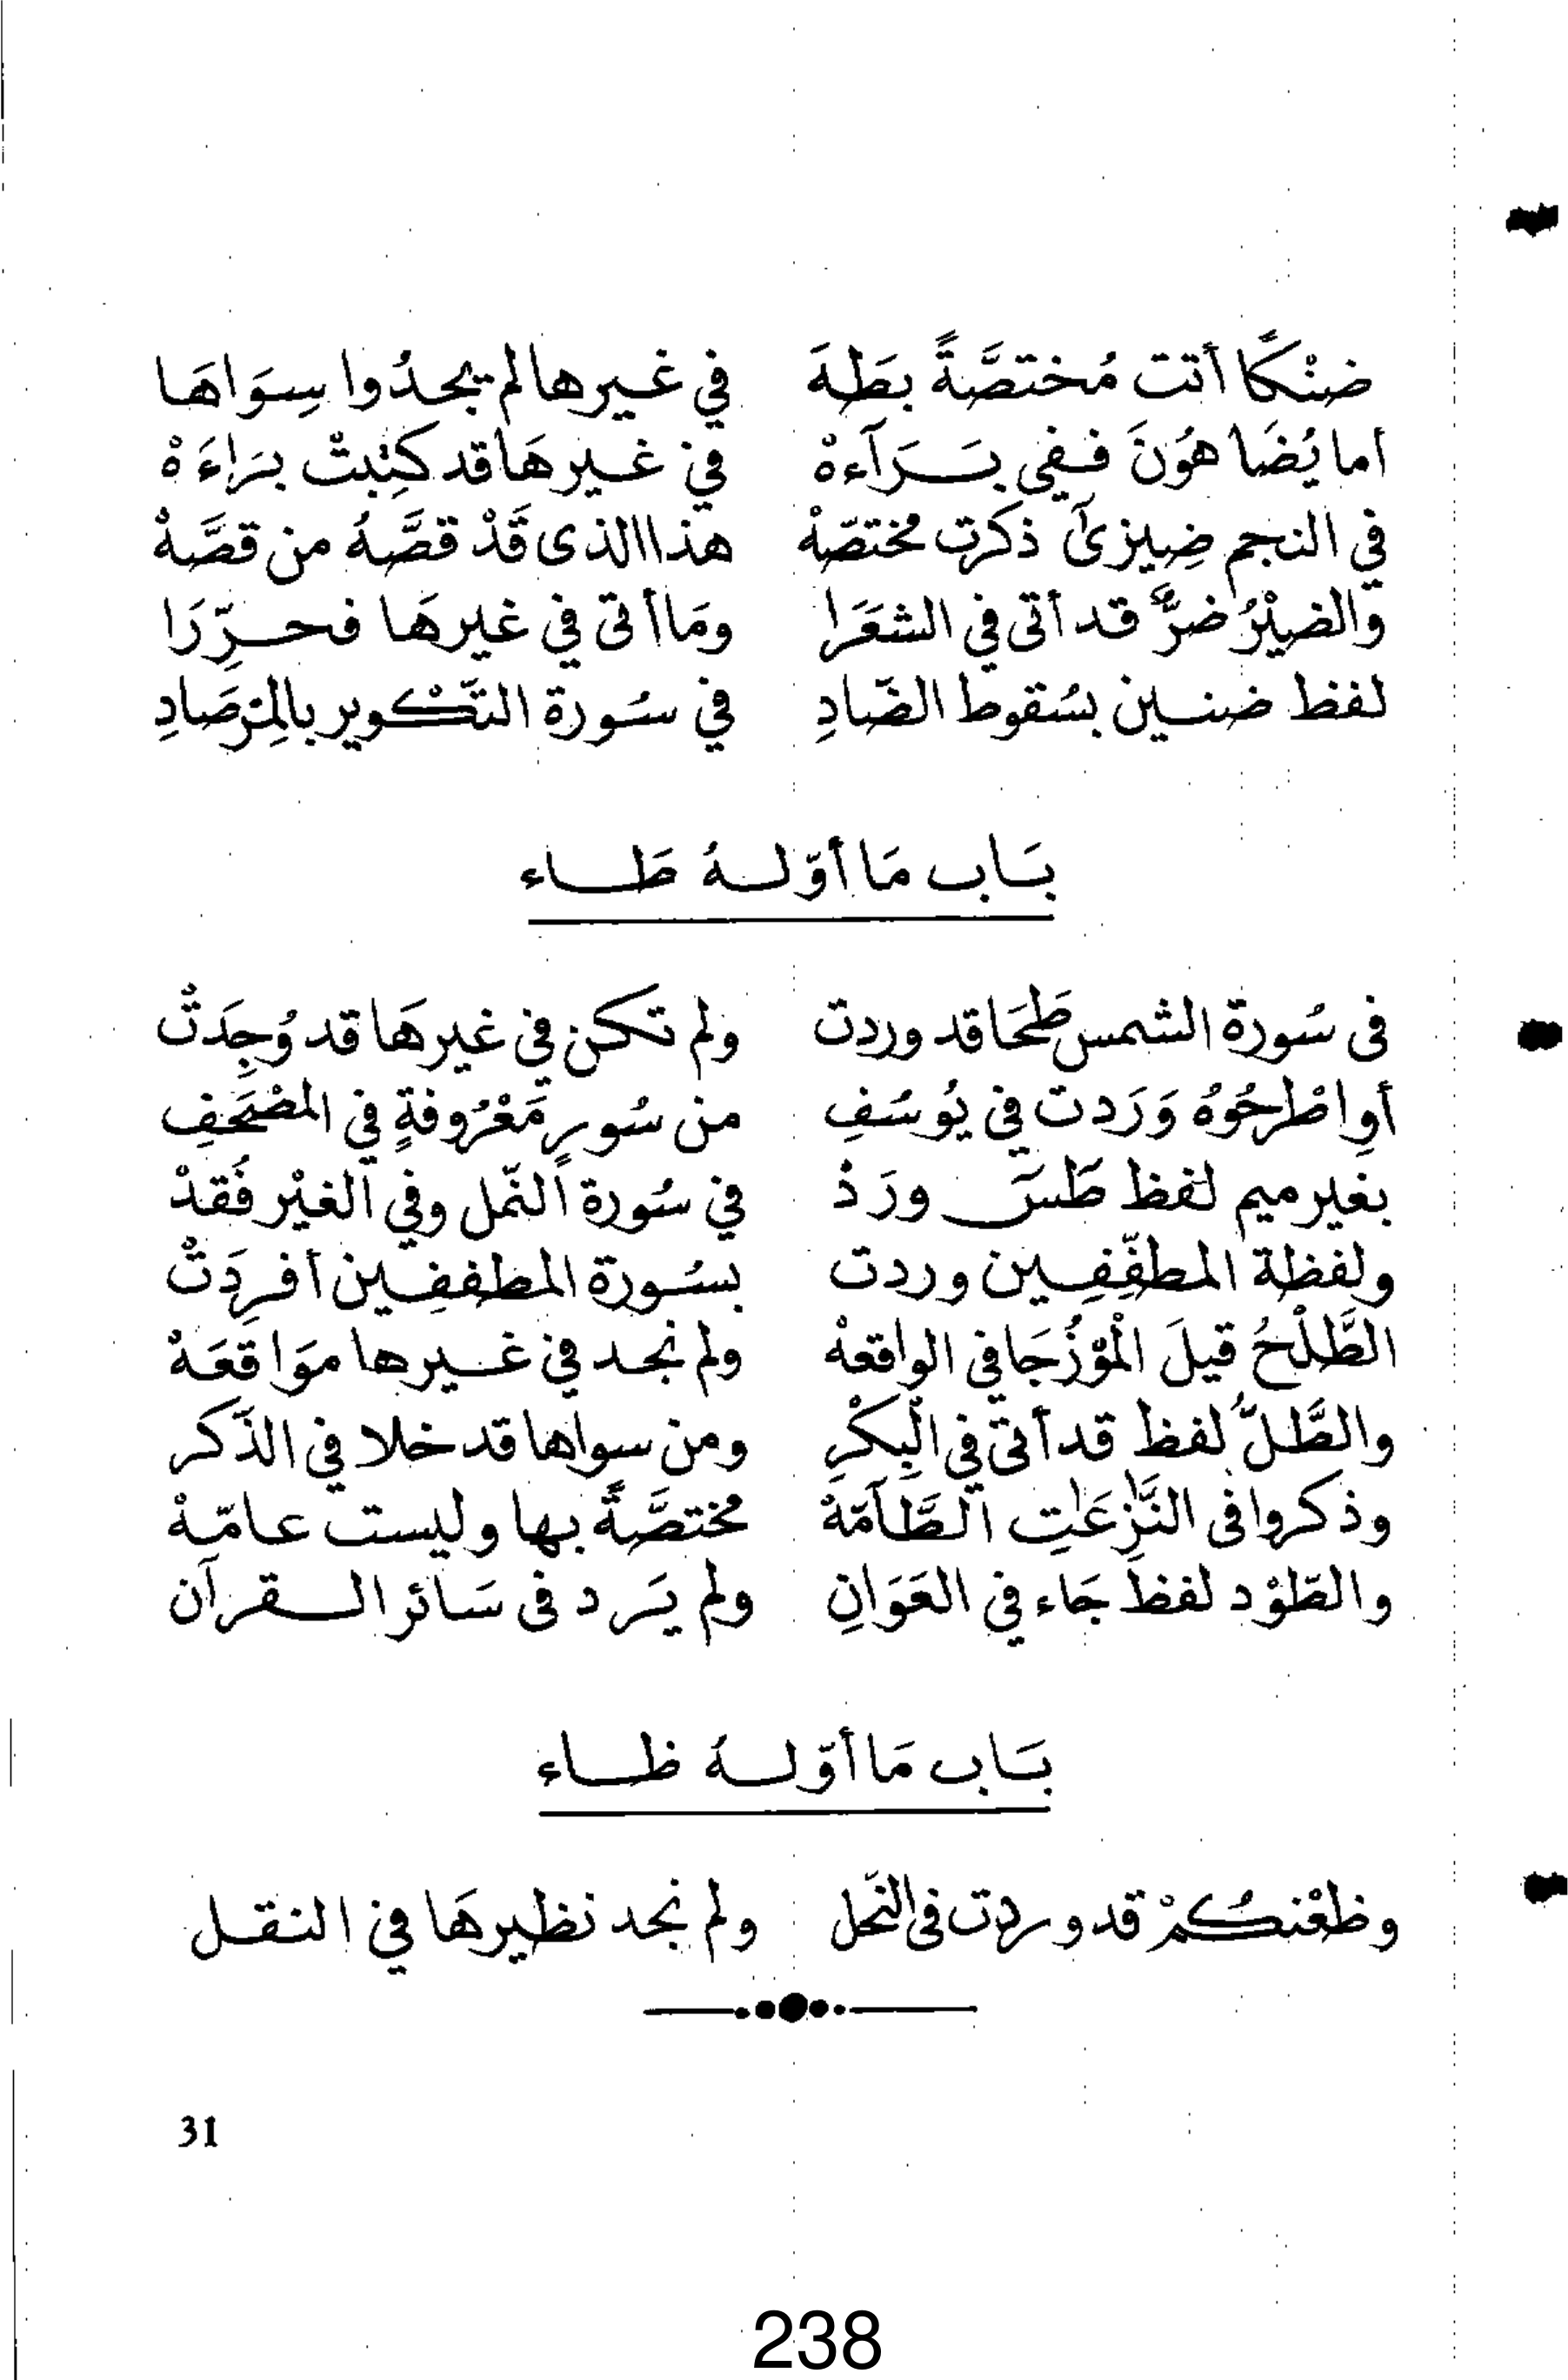 ضنْكًا أتت مُختصَّةً بطَهَ في غيرها لم يجدُوا سِوَاهَا
أما يُضَاهُونَ ففي بَرَآءهْ في غيرهَا قد كتِبتْ برَاءَهْ
في النجم ضِيزىٓ ذكرت مختصّهْ هذا الذى قَدْ قصَّهُ من قصَّهْ
والضيْرُ ضرٌّ قد أتى في الشعَرَا ومَا أتى في غيرهَا فحرِّرَا
لفظ ضنين بسُقوط الضّادِ في سُورة التّكْوير بالمِرْصَادِ
بَاب مَا أوّلهُ طَاء
فى سُورة الشمس طَحَا قد وردت ولم تكن في غيرهَا قد وُجِدَتْ
أو اطْرحُوهُ وَرَدت في يُوسُفِ من سُورٍ مَعْرُوفةٍ في المصْحَفِ
بغير ميم لفظ طَسٓ ورَدْ في سُورة النّمل وفي الغيْر فُقدْ
ولفظة المطفِّفِين وردت بسُورة المطففِين أفرِدَتْ
الطَّلْحُ قيلَ الْمَوْزُ جَا في الواقعهْ ولم نجد في غيرها موَاقعَهْ
والطَّلُّ لفظ قد أتى في الْبِكْرِ ومن سواها قد خلا في الذّكر
وذكروا فى النَّٰزِعَٰتِ الطَّآمّهْ مختصَّةً بها وليست عامّهْ
والطّوْد لفظ جَاء في العَوَانِ ولم يَرد فى سَائر القرآن
بَاب مَا أوّلهُ ظاء
وظعْنكُمْ قد وردت فى النّحل ولم نجد نظيرهَا في النقل
31
238